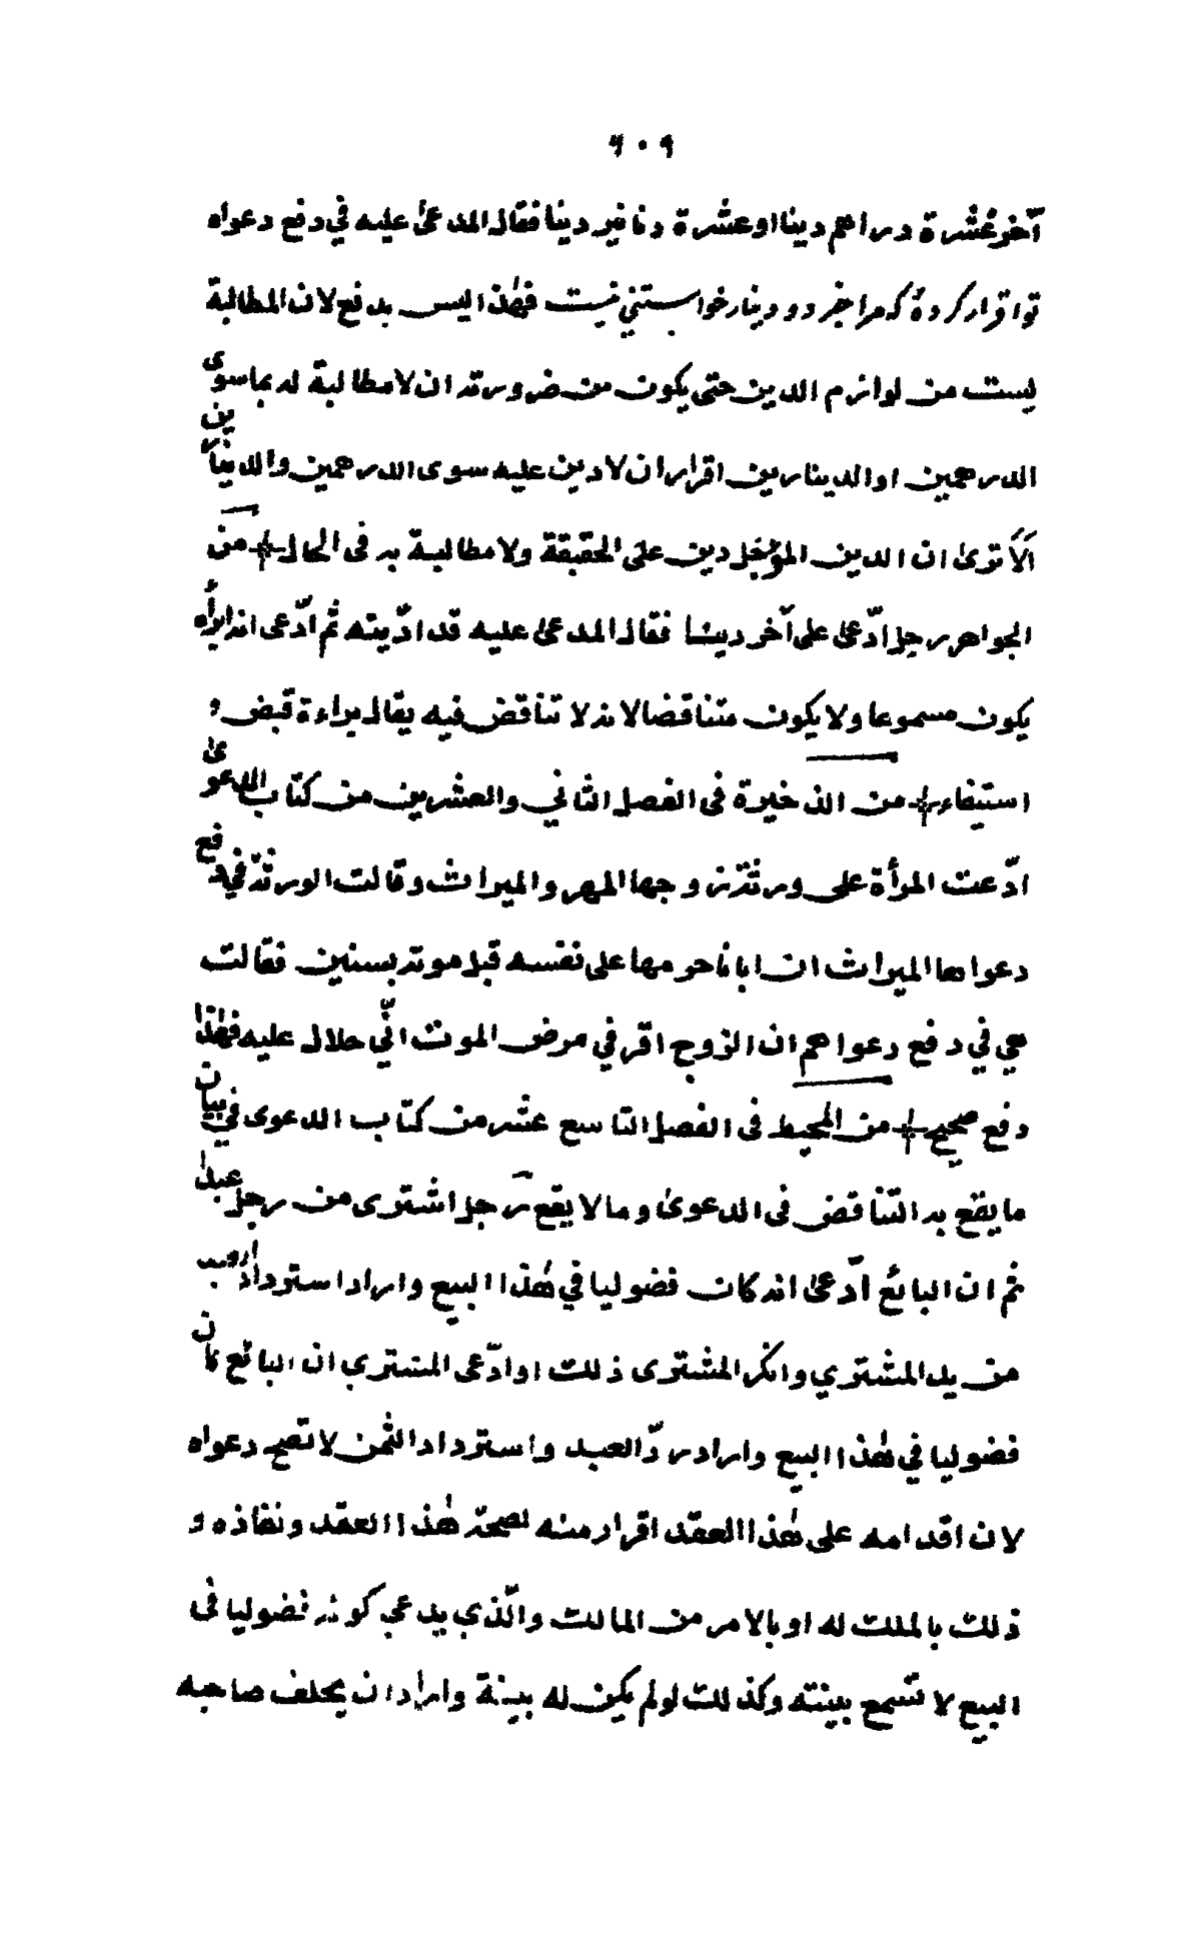 ٦٠٩
آخر عُشْرة دراهم دينا او عشْرة دنانير دينا فقال المدعىٰ عليه في دفع دعواه
تو اقرار كردهٔ كه مرا جز دو دينار خواستنى نيست فهٰذا ليس بدفع لان المطالبة
ليست من لوازم الدين حتى يكون من ضرورته ان لا مطالبة له بما سوى
الدرهمين او الدينارين اقرارا ان لا دين عليه سوى الدرهمين والدينارين
اَلَا ترىٰ ان الدين المؤجّل دين على الحقيقة ولا مطالبة به فى الحال + من
الجواهر رجل ادّعىٰ على آخر دينا فقال المدعىٰ عليه قد ادّيته ثم ادّعى انه ابرأه
يكون مسموعا ولا يكون متناقضا لانه لا تناقض فيه يقال براءة قبض و
استيفاء + من الذخيرة فى الفصل الثاني والعشرين من كتاب الدعوىٰ
ادّعت المرأة على ورثة زوجها المهر والميراث وقالت الورثة في دفع
دعواها الميراث ان ابانا حرمها على نفسه قبل موته بسنين فقالت
هي في دفع دعواهم ان الزوج اقر في مرض الموت انّي حلال عليه فهٰذا
دفع صحيح + من المحيط فى الفصل التاسع عشر من كتاب الدعوى في بيان
ما يقع به التناقض فى الدعوىٰ وما لا يقع رجل اشترى من رجل عبدا
ثم ان البائع ادّعىٰ انه كان فضوليا في هٰذا البيع واراد استرداد العبد
من يد المشتري وانكر المشترى ذلك او ادّعى المشتري ان البائع كان
فضوليا في هٰذا البيع واراد ردّ العبد واسترداد الثمن لا تصح دعواه
لان اقدامه على هٰذا العقد اقرار منه لصحة هٰذا العقد ونفاذه و
ذلك بالملك له او بالامر من المالك والّذي يدعي كونه فضوليا فى
البيع لا تسمع بينته وكذلك لو لم يكن له بينة واراد ان يحلف صاحبه